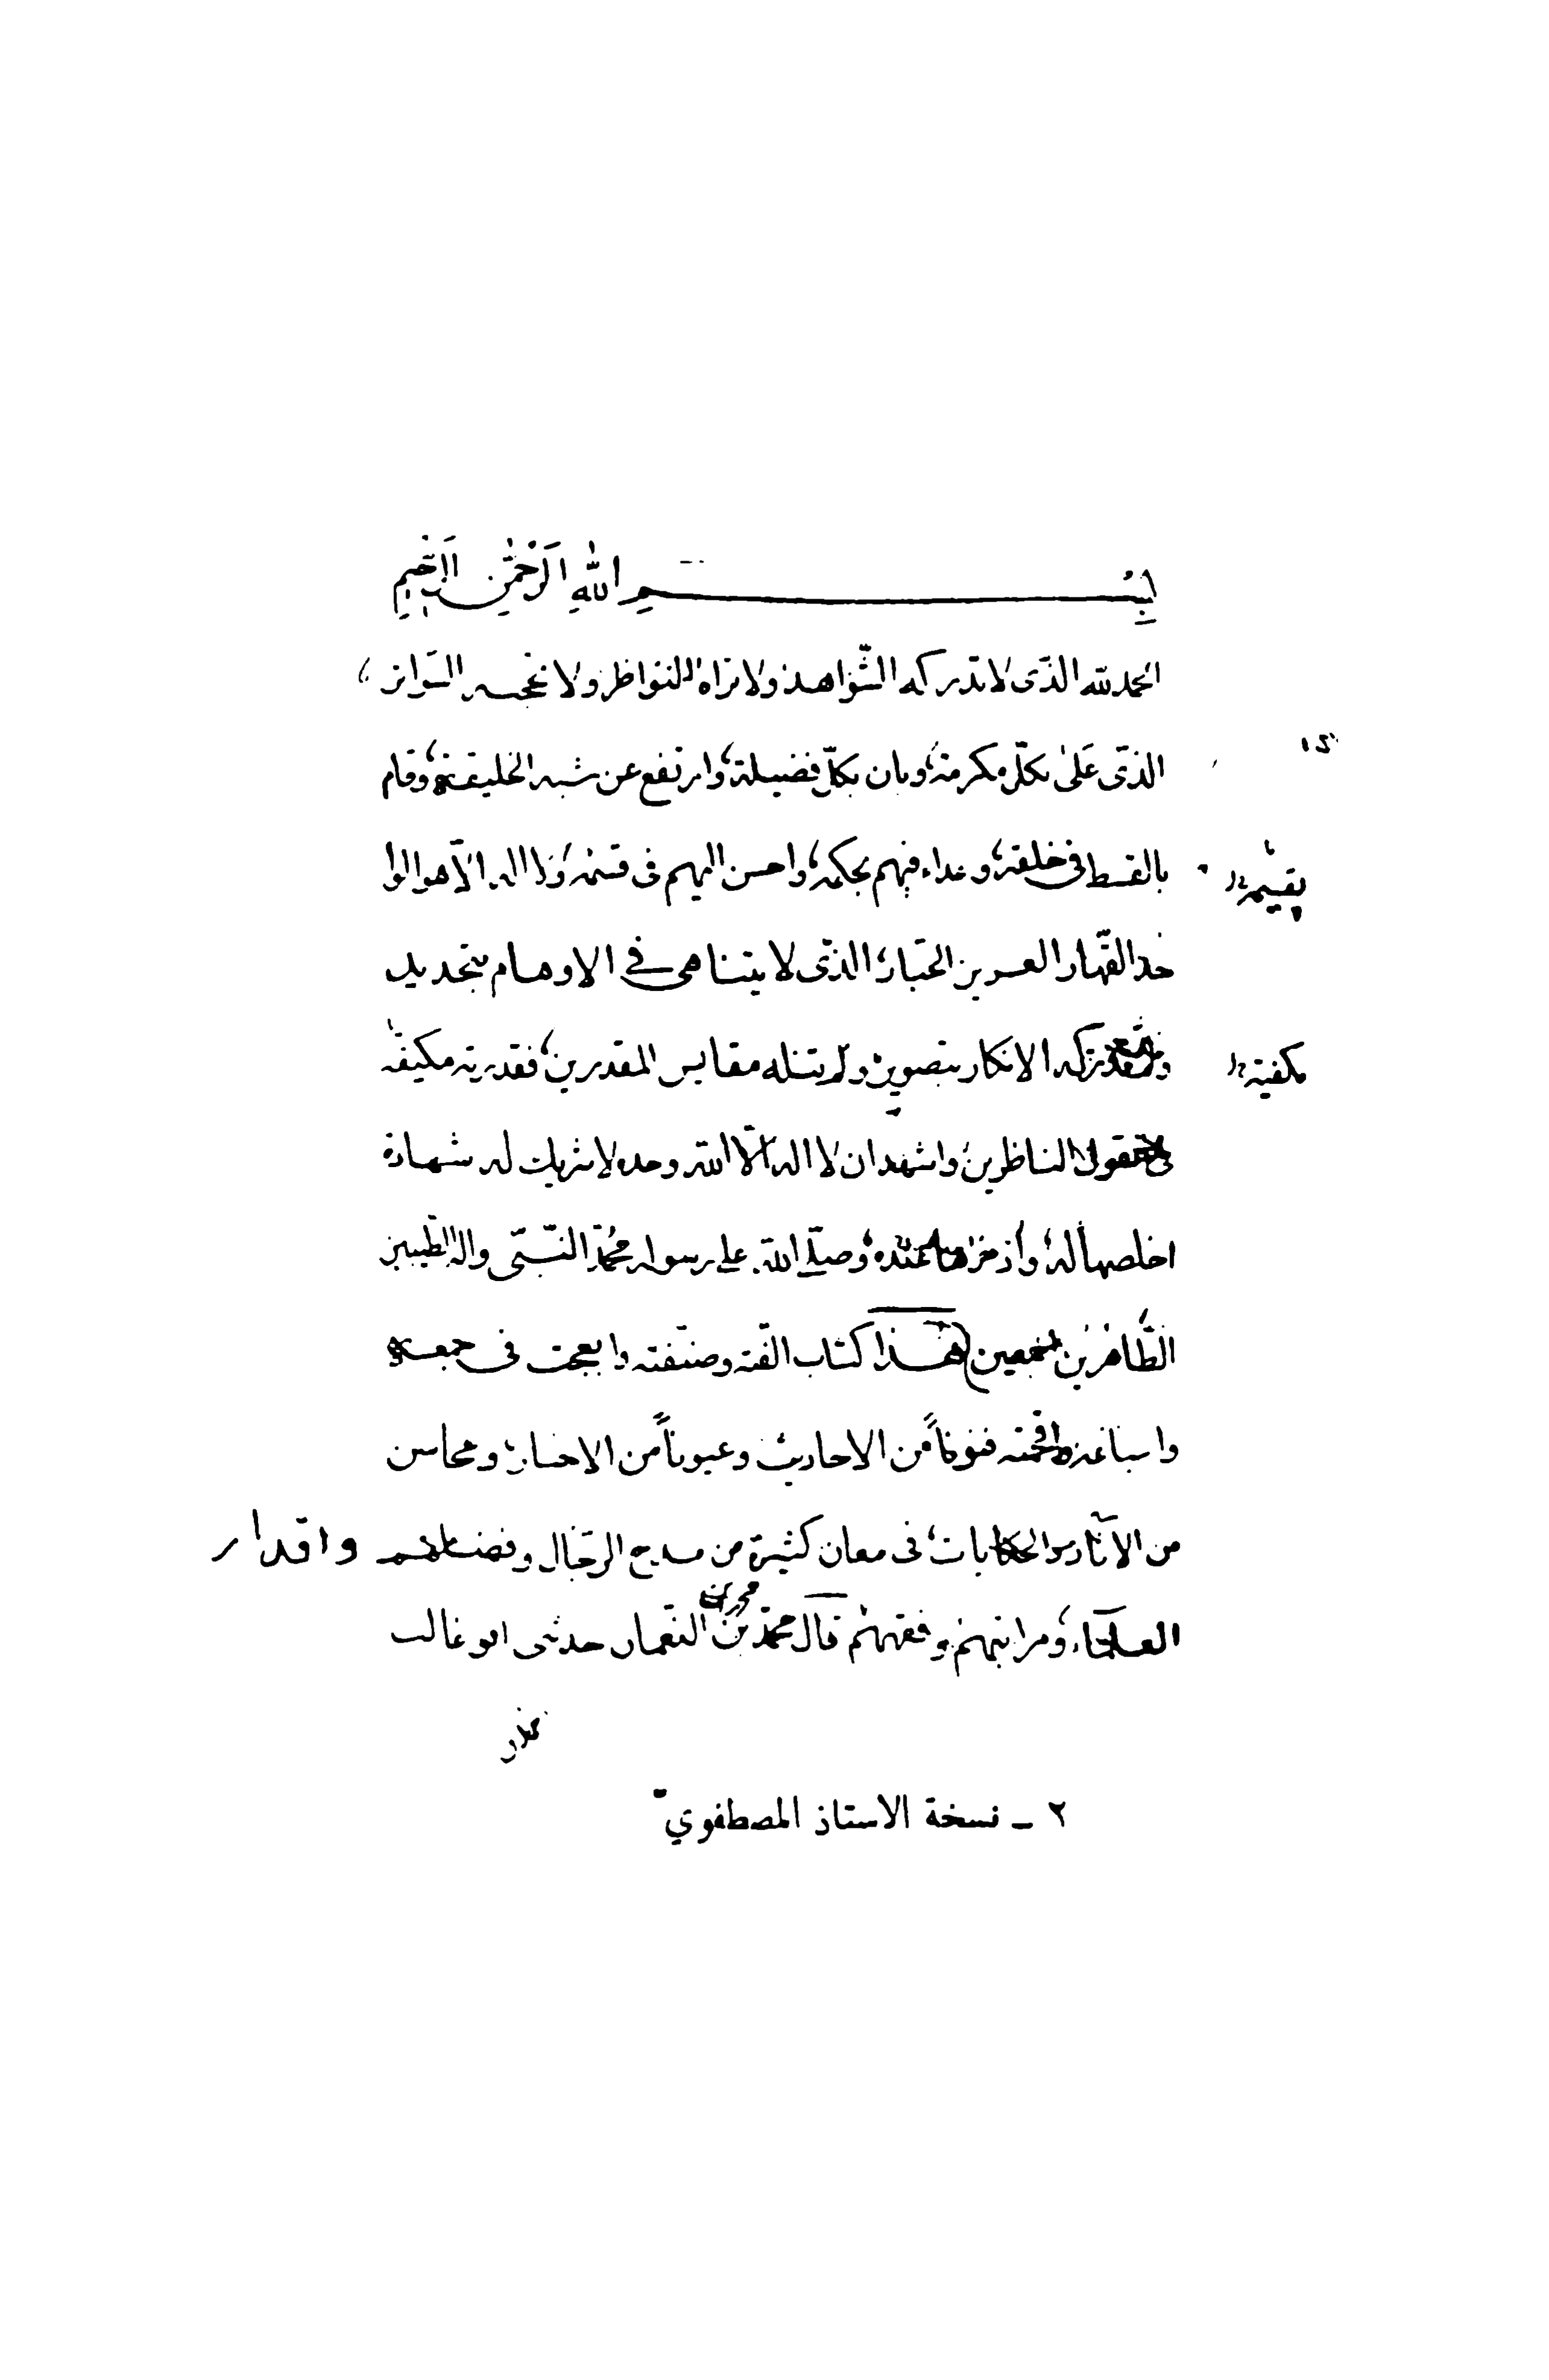 بِسْمِ اللهِ الرَّحْمٰنِ الرَّحِيمِ
الحمد لله الذّى لا تدركه الشّواهد ولا تراه النّواظر ولا تحجبه السّواتر،
الذّى عَلىٰ بكلّ مكرمة، وبان بكلّ فضيلة، وارتفع عن شبه الخليقة، وقام
بالقسط فى خلقه، وعدله فيهم بحكمه، واحسن اليهم فى قسمه، ولا اله الّا هو الوا
بقسمه
حد القهّار العزيز الجبّار، الذّى لا يتناهى فى الاوهام بتحديد
الافكار بتصوير، ولم تنله مقايس المقدرين، فقدرته مكيفة
مكفية
عقول الناظرين، واشهد ان لا اله الّا الله وحده لا شريك له شهادة
اخلصها له، وأذخرها عنده، وصلّى الله على رسوله محمّد النّبىّ واله الطّيبين
الطّاهرين اجمعين هذا كتاب الّفته وصنّفته والعجت فى جمعه
واسباغه فنوناً من الاحاديث وعيوناً من الاخبار، ومحاسن
من الآثار والحكايات، فى معان كثيرة من مدح الرّجال وفضلهم واقدار
العلمآء، ومراتبهم وفقههم قال محمّد بن محمد بن النّعمان حدثنى ابو غالب
٢ ـ نسخة الاستاذ المصطفوي